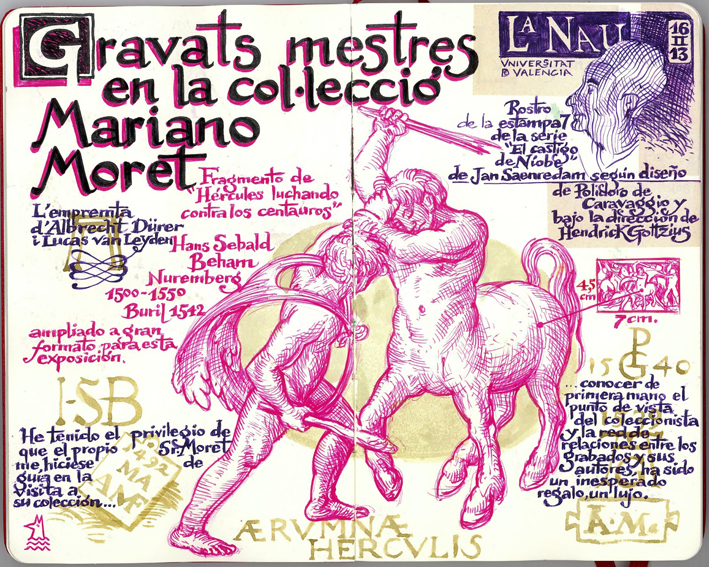 Gravats mestres
en la col·lecció
Mariano
Moret
LA NAU
UNIVERSITAT
DE VALENCIA
16
II
13
Rostro
de la estampa 7
de la serie
"El castigo
de Níobe"
de Jan Saenredam según diseño
de Polidoro de
Caravaggio y
bajo la dirección de
Hendrick Goltzius
Fragmento de
"Hércules luchando
contra los centauros"
L'empremta
d'Albrecht Dürer
i Lucas van Leyden
Hans Sebald
Beham
Nuremberg
1500-1550
Buril 1542
ampliado a gran
formato para esta
exposición.
4,5
cm
7 cm.
I·SB
1540
PG
He tenido el privilegio de
que el propio Sr. Moret
me hiciese de
guía en la
visita a
su colección...
1492
MA
AMF
...conocer de
primera mano el
punto de vista
del coleccionista
y la red de
relaciones entre los
grabados y sus
autores, ha sido
un inesperado
regalo, un lujo.
A·M
ÆRVMNÆ
HERCVLIS